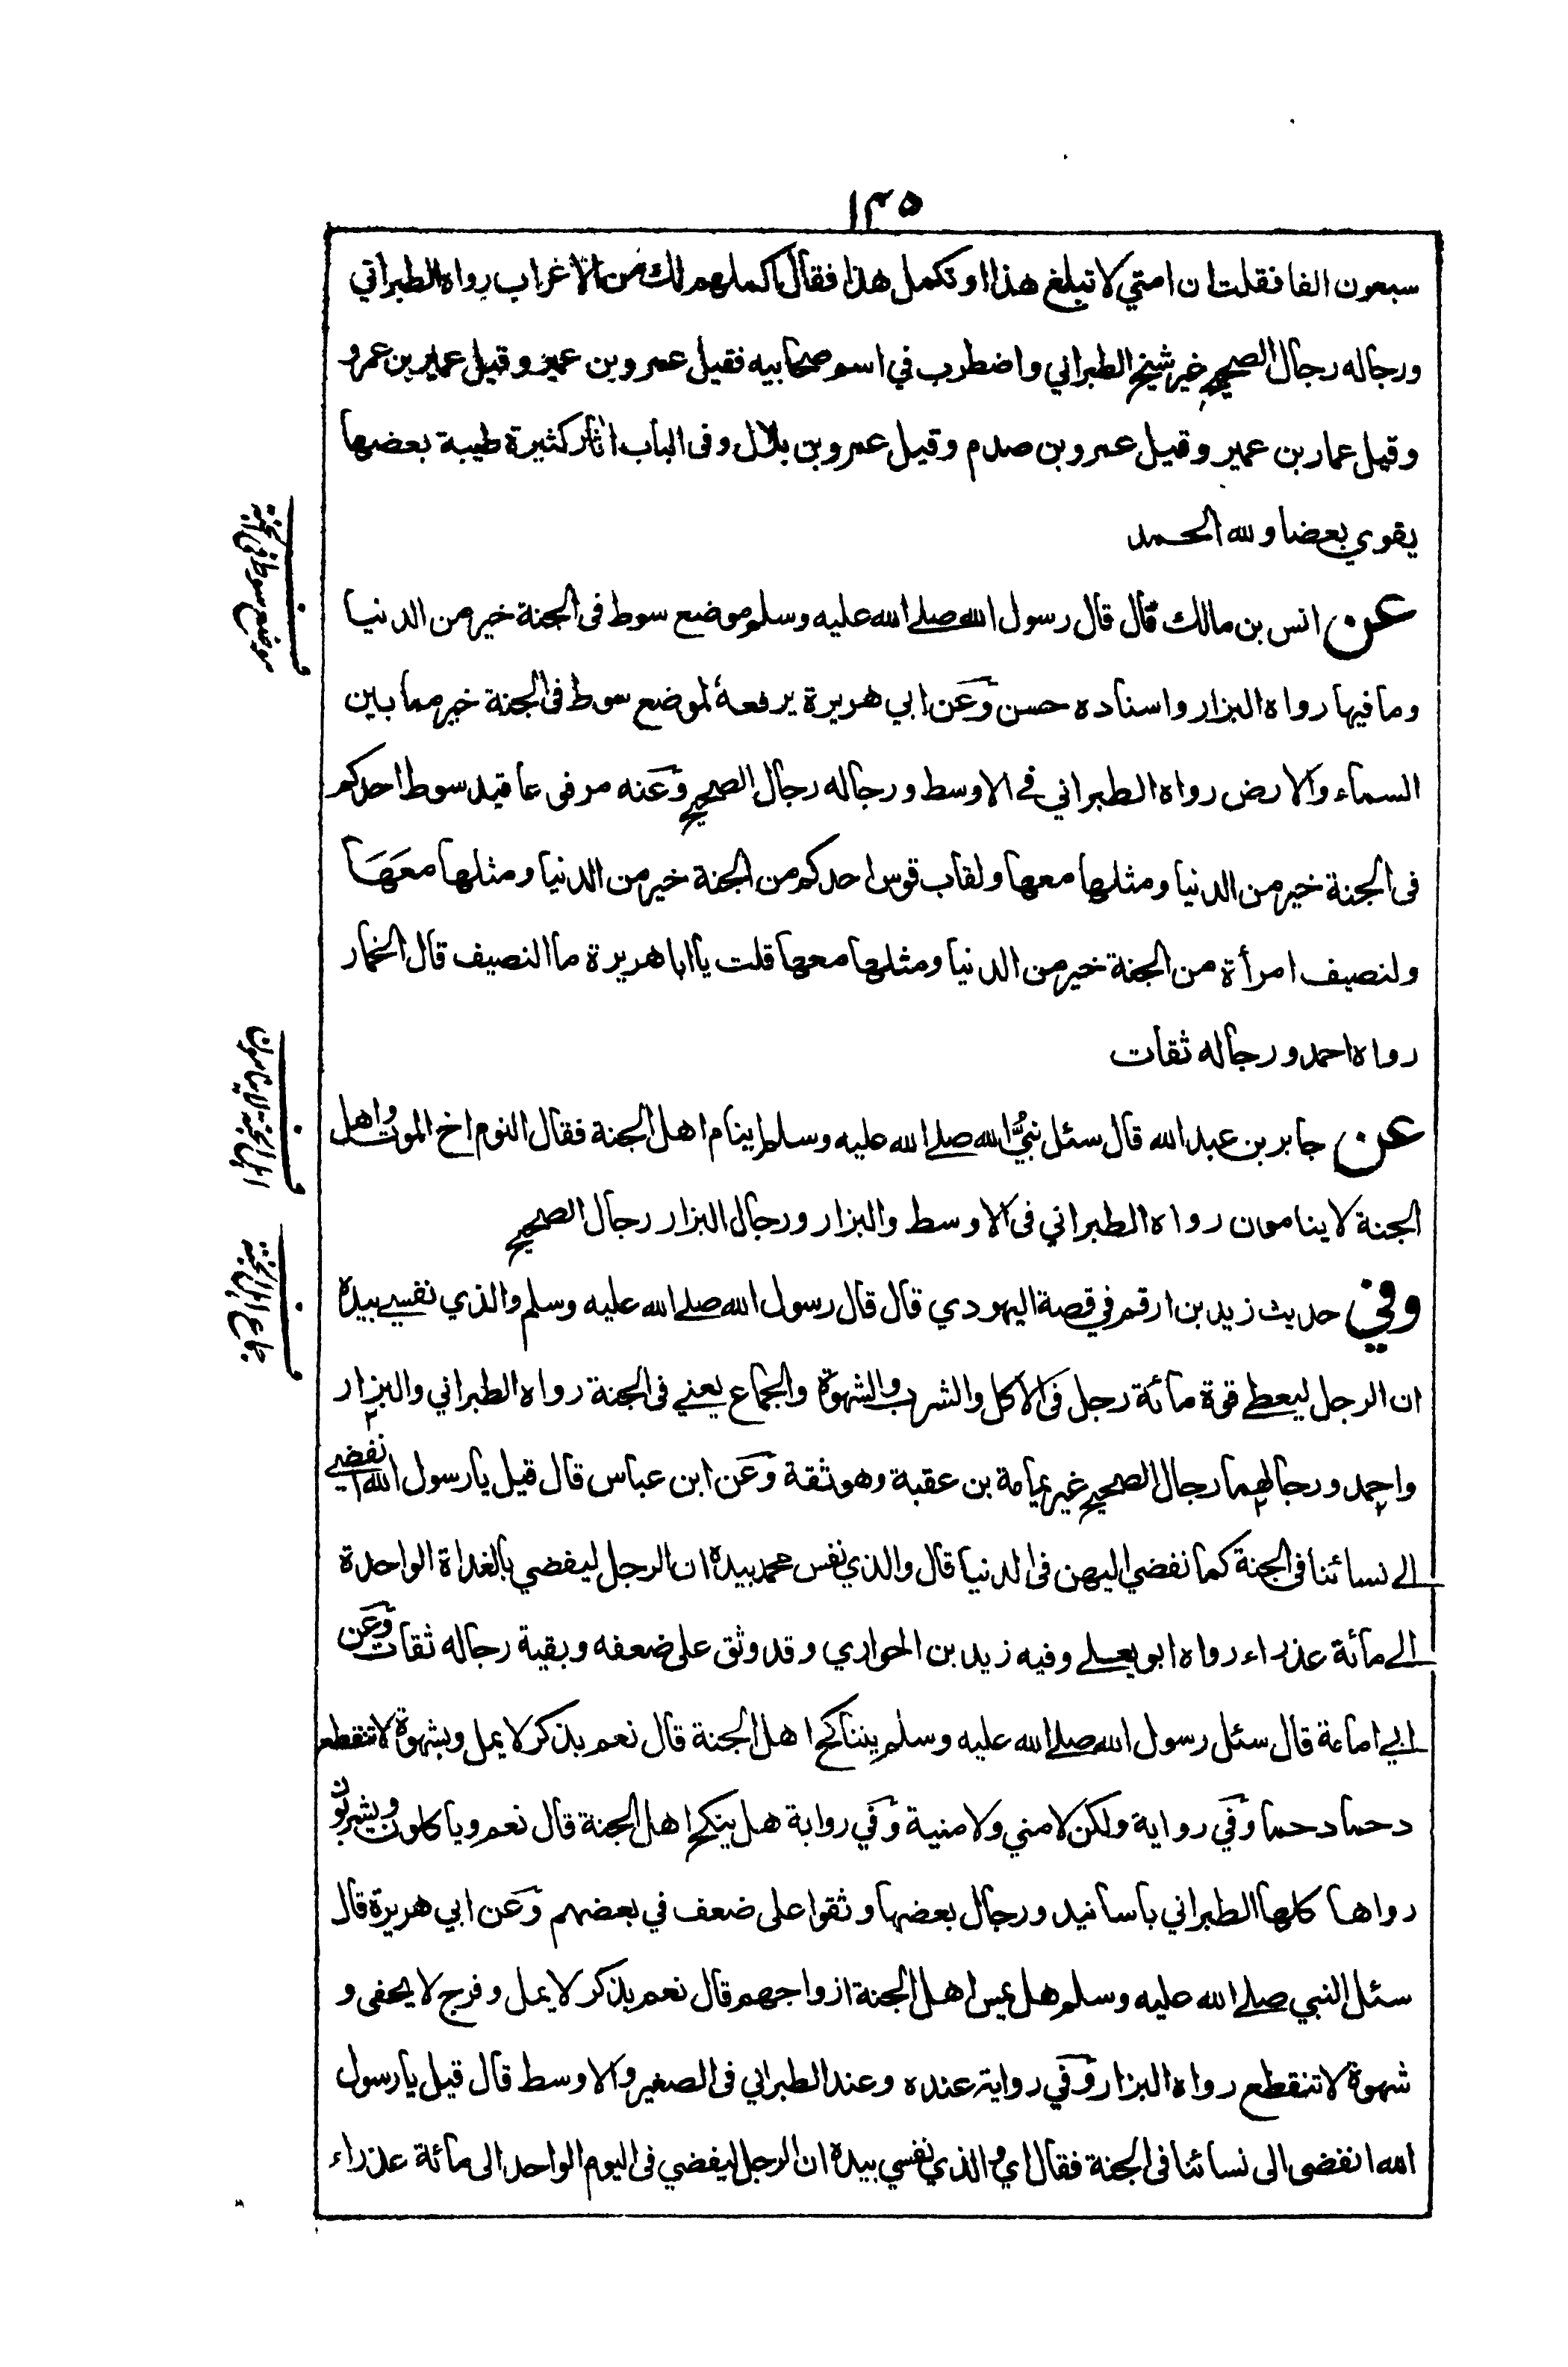 ١٣٥
سبعون الفا فقلت ان امتي لا تبلغ هذا او تكمل هذا فقال اكملهم لك من الاغراب رواه الطبراني
ورجاله رجال الصحيح غير شيخ الطبراني واضطرب في اسم صحابيه فقيل عمرو بن عمير وقيل عمير بن عمرو
وقيل عمار بن عمير وقيل عمرو بن صدم وقيل عمرو بن بلال وفى الباب اثار كثيرة طيبة بعضها
يقوي بعضا ولله الحمد
عن انس بن مالك قال قال رسول الله صلے الله عليه وسلم موضع سوط فى الجنة خير من الدنيا
وما فيها رواه البزار واسناده حسن وعن ابي هريرة يرفعه لموضع سوط فى الجنة خير مما بين
السماء والارض رواه الطبراني في الاوسط ورجاله رجال الصحيح وعنه مرفى عا قيد سوط احدكم
فى الجنة خير من الدنيا ومثلها معها ولقاب قوس احدكم من الجنة خير من الدنيا ومثلها معَهَا
ولنصيف امرأة من الجنة خير من الدنيا ومثلها معها قلت يا ابا هريرة ما النصيف قال الخمار
رواه احمد ورجاله ثقات
عن جابر بن عبد الله قال سئل نبيُّ الله صلے الله عليه وسلم اينام اهل الجنة فقال النوم اخ الموت واهل
الجنة لا ينامون رواه الطبراني فى الاوسط والبزار ورجال البزار رجال الصحيح
وفي حديث زيد بن ارقم في قصة اليهودي قال قال رسول الله صلے الله عليه وسلم والذي نفسے بيده
ان الرجل ليعطے قوة مائة رجل فى الاكل والشرب والشهوة والجماع يعنے فى الجنة رواه الطبراني والبزار
واحمد ورجالهما رجال الصحيح غير ثمامة بن عقبة وهو ثقة وعن ابن عباس قال قيل يا رسول الله انفضے
الے نسائنا فى الجنة كما نفضي اليهن فى الدنيا قال والذي نفس محمد بيده ان الرجل ليفضي بالغداة الواحدة
الے مائة عذراء رواه ابو يعلے وفيه زيد بن الحواري وقد وثق على ضعفه وبقية رجاله ثقات وعن
ابي امامة قال سئل رسول الله صلے الله عليه وسلم يتناكح اهل الجنة قال نعم بذكر لا يمل وبشهوة لا تنقطع
دحما دحما وفي رواية ولكن لا مني ولا منية وفي رواية هل ينكح اهل الجنة قال نعم وياكلون ويشربون
رواها كلها الطبراني باسانيد ورجال بعضها وثقوا على ضعف في بعضهم وعن ابي هريرة قال
سئل النبي صلے الله عليه وسلم هل يمس اهل الجنة ازواجهم قال نعم بذكر لا يمل وفرج لا يحفى و
شهوة لا تنقطع رواه البزار وفي رواية عنده وعند الطبراني فى الصغير والاوسط قال قيل يا رسول
الله انفضى الى نسائنا فى الجنة فقال اي والذي نفسي بيده ان الرجل ليفضي فى اليوم الواحد الى مائة عذراء
ف
موضع سوط فى الجنة
ف
اهل الجنة لا ينامون
ف
جماع اهل الجنة